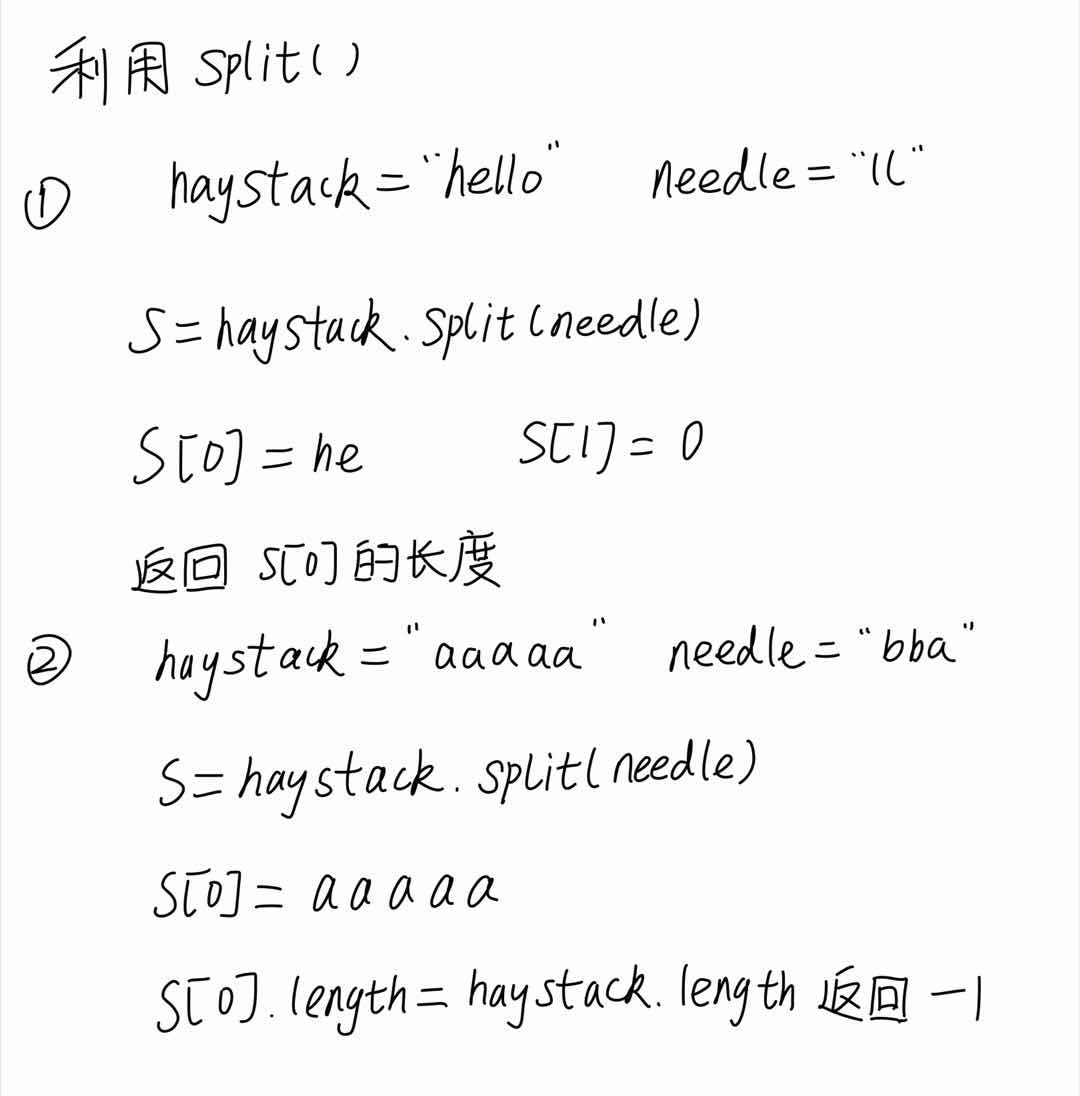 利用 split()
① haystack="hello" needle="ll"
S=haystack.split(needle)
S[0]=he S[1]=o
返回 S[0]的长度
② haystack="aaaaa" needle="bba"
S=haystack.split(needle)
S[0]=aaaaa
S[0].length=haystack.length 返回 -1